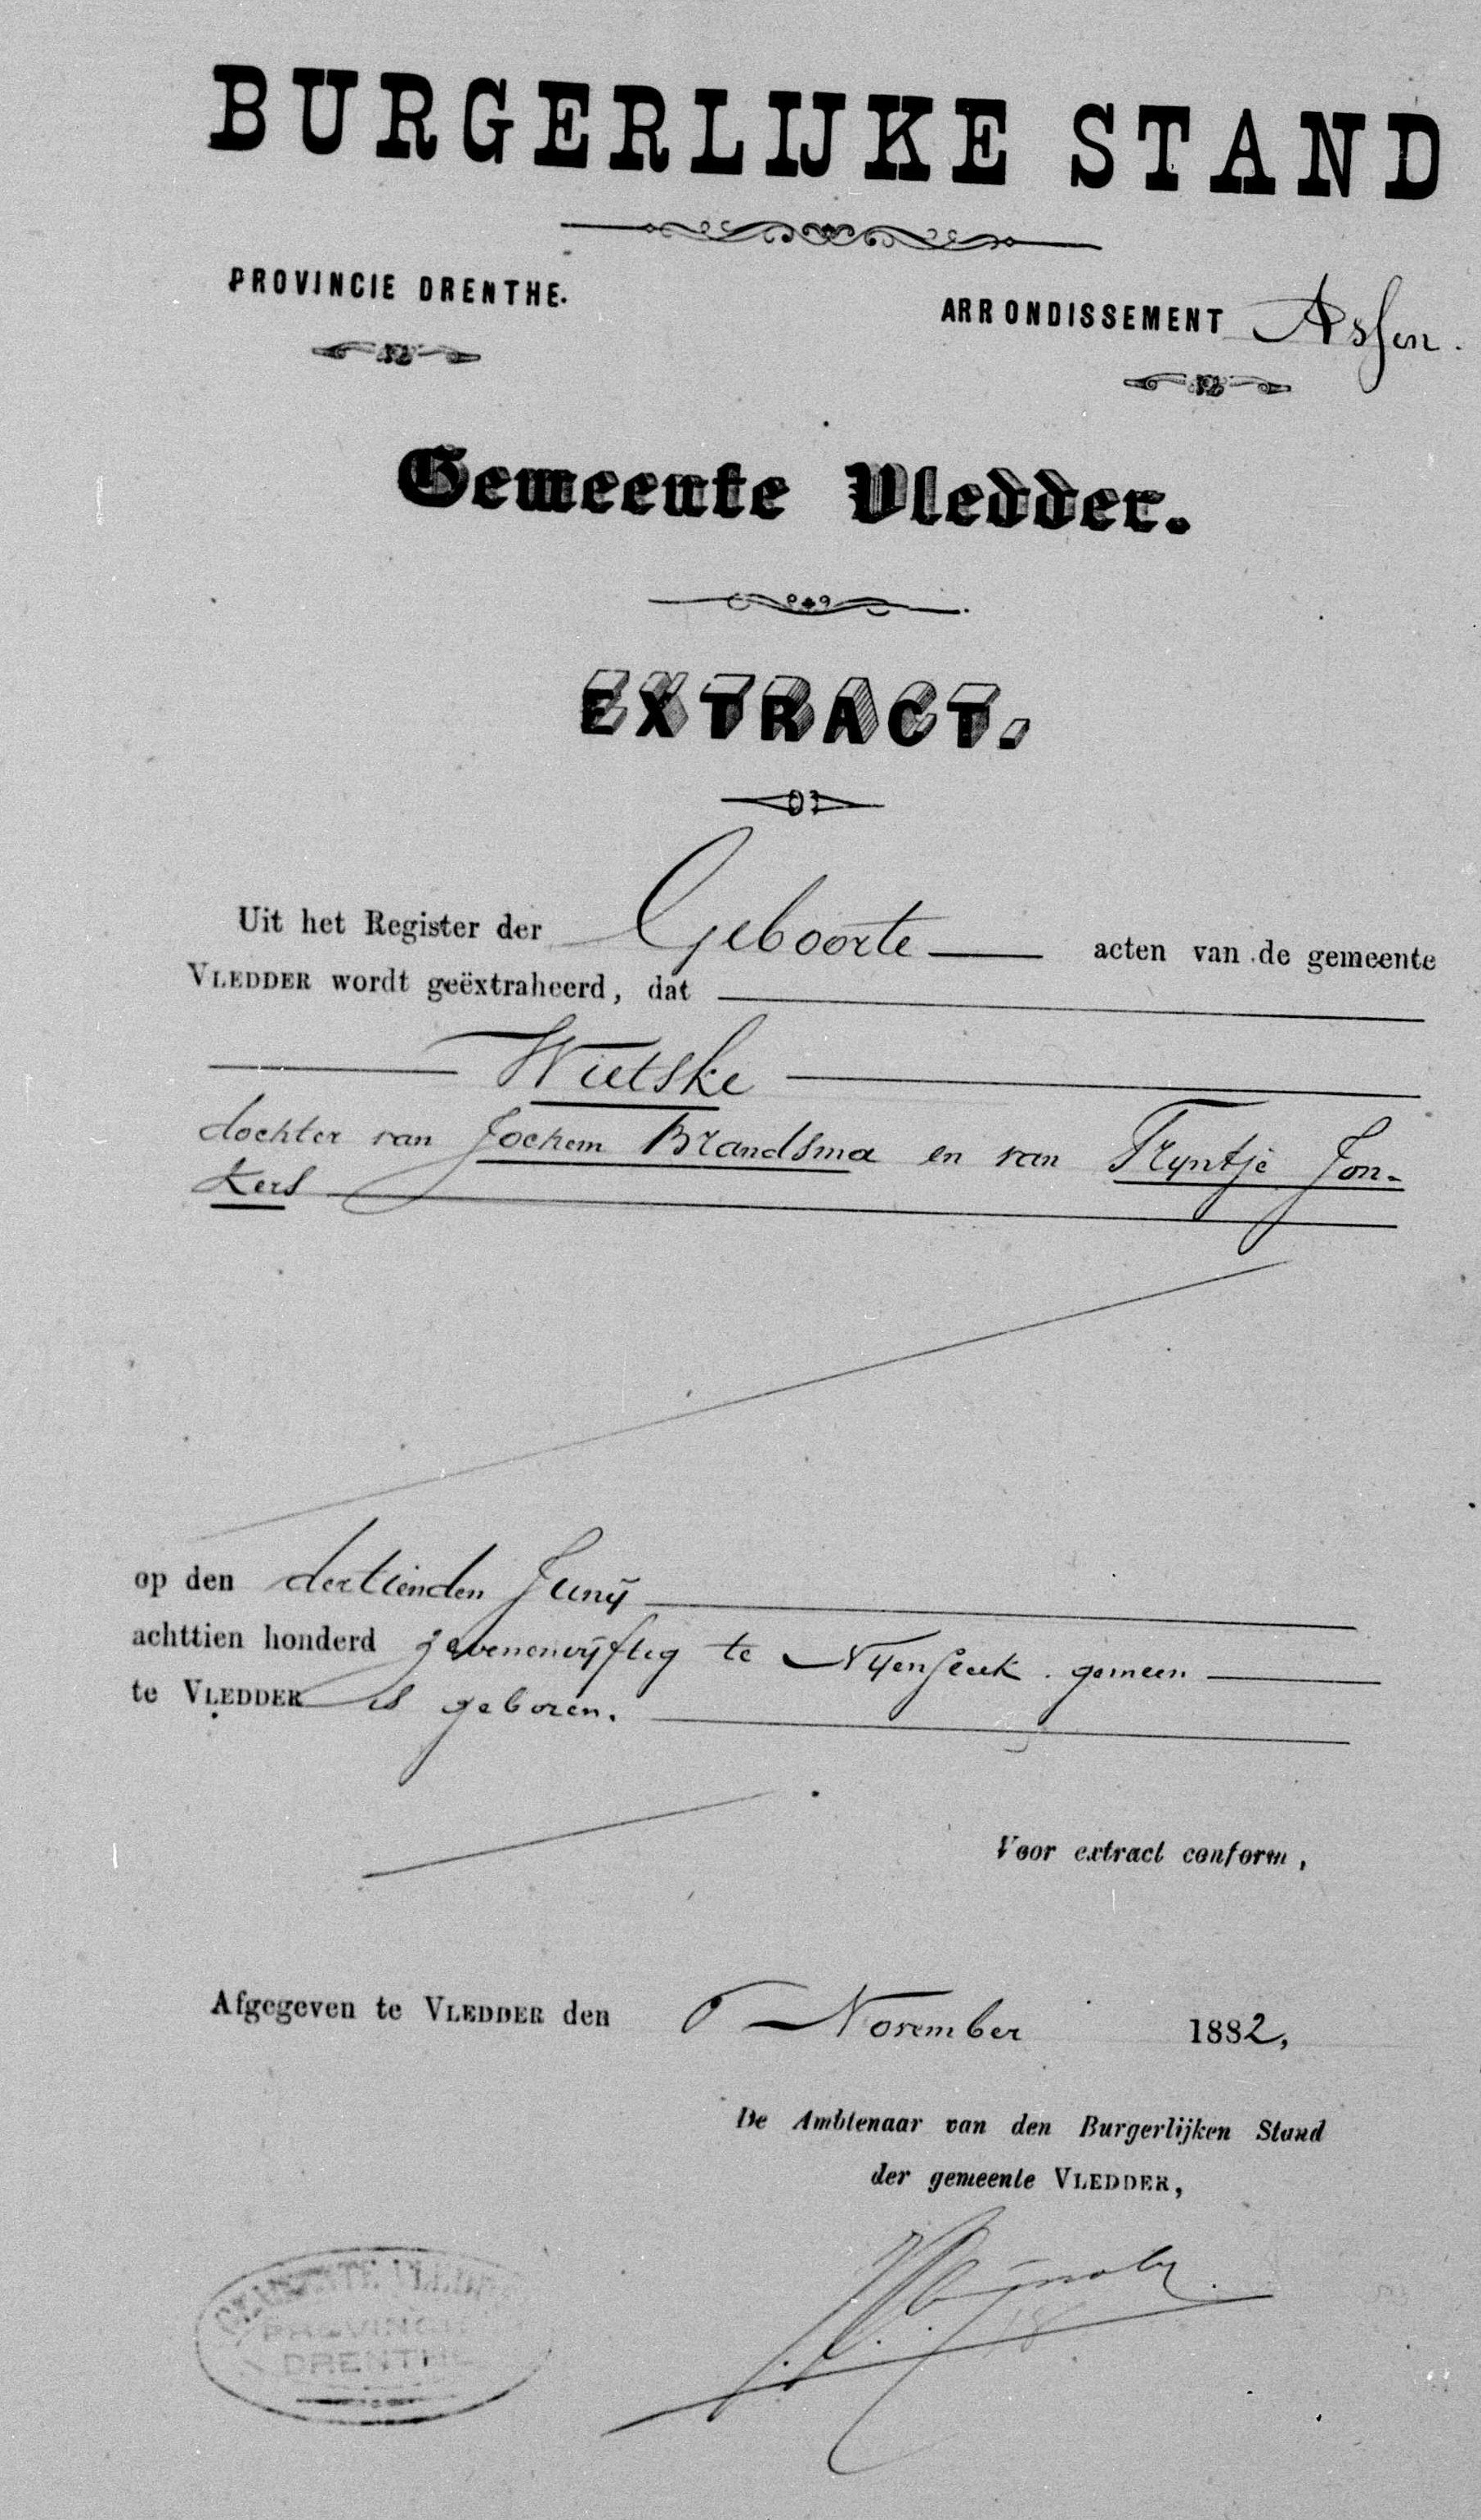 BURGERLIJKE STAND
PROVINCIE DRENTHE.
ARRONDISSEMENT Assen.
Gemeente Vledder.
EXTRACT.
Uit het Register der Geboorte acten van de gemeente
VLEDDER wordt geëxtraheerd, dat
Wietske
dochter van Jochem Brandsma en van Tryntje Jon-
kers
op den dertienden Junij
achttien honderd zevenenvijftig te Nijensleek gemeen
te VLEDDER is geboren.
Voor extract conform,
Afgegeven te VLEDDER den November 1882,
De Ambtenaar van den Burgerlijken Stand
der gemeente VLEDDER,
GEMEENTE VLEDDER
PROVINCIE
DRENTHE